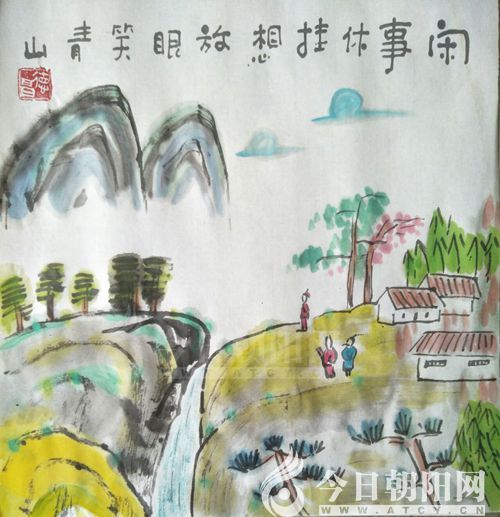 闲事休挂想放眼笑青山
今日朝阳网
WWW.ATCY.CN